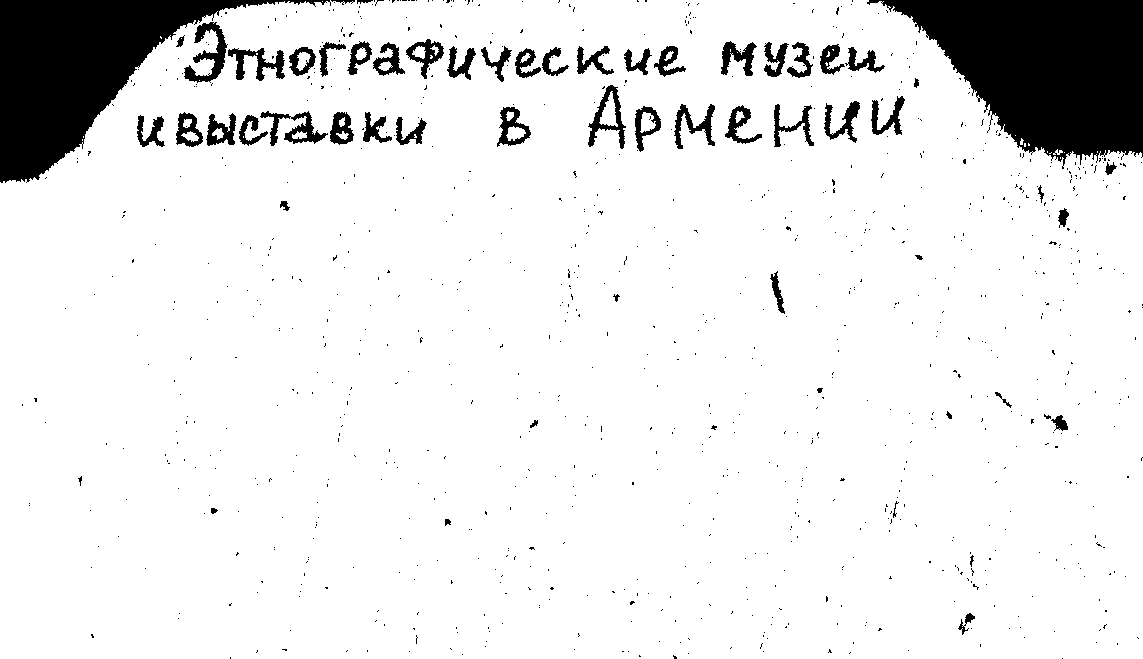 Этнографические музеи
и выставки в Армении